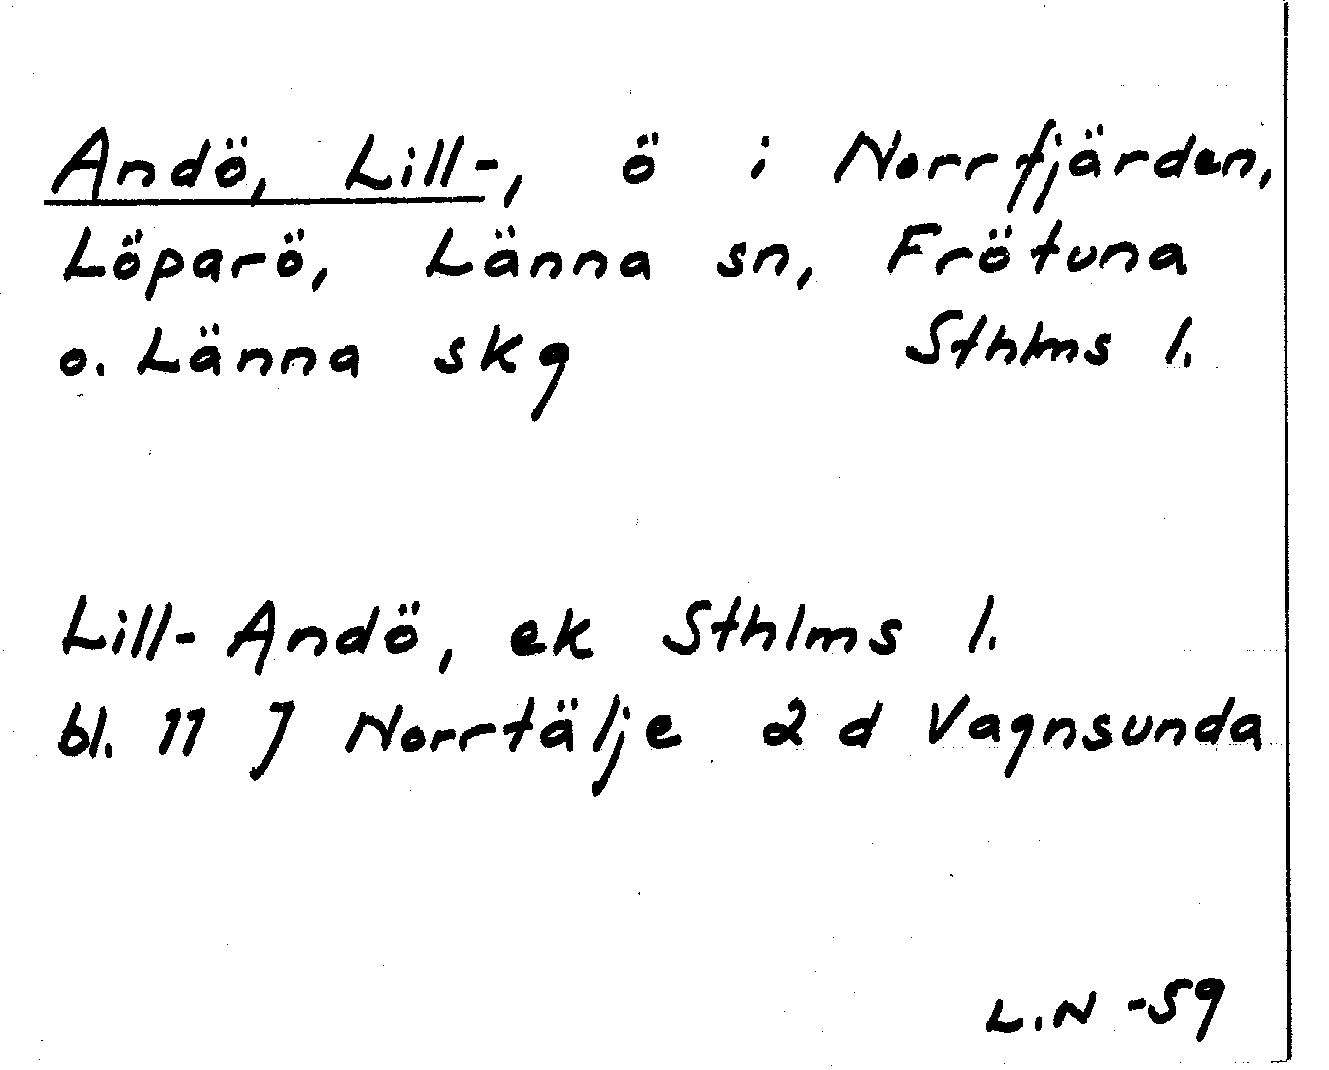 Andö, Lill-, ö i Norrfjärden,
Löparö, Länna sn, Frötuna
o. Länna skg Sthlms l.
Lill-Andö, ek Sthlms l.
bl. 11 J Norrtälje 2 d Vagnsunda
L.N -59